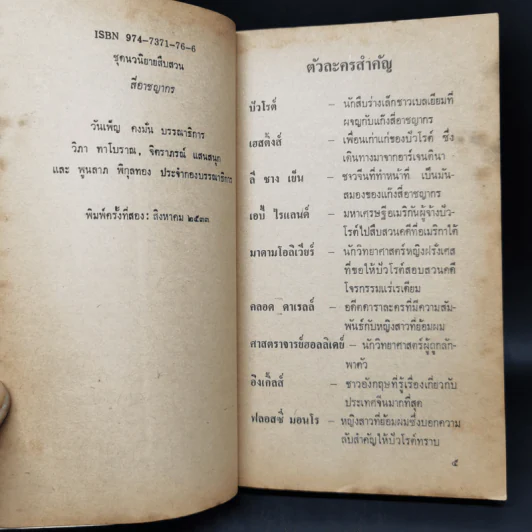 ISBN 974-7371-76-6
ชุดนวนิยายสืบสวน
สี่อาชญากร
วันเพ็ญ คงมั่น บรรณาธิการ
วิภา ทาโบราณ, จิตราภรณ์ แสนสนุก
และ พูนลาภ พิกุลทอง ประจำกองบรรณาธิการ
พิมพ์ครั้งที่สอง: สิงหาคม ๒๕๓๓
ตัวละครสำคัญ
ปัวโรต์ – นักสืบร่างเล็กชาวเบลเยียมที่
ผจญกับแก๊งสี่อาชญากร
เฮสติ้งส์ – เพื่อนเก่าแก่ของปัวโรต์ ซึ่ง
เดินทางมาจากอาร์เจนตินา
ลี ชาง เย็น – ชาวจีนที่ทำหน้าที่ เป็นมัน-
สมองของแก๊งสี่อาชญากร
เอบี ไรแลนด์ – มหาเศรษฐีอเมริกันผู้จ้างปัว-
โรต์ไปสืบสวนคดีที่อเมริกาใต้
มาดามโอลิเวียร์ – นักวิทยาศาสตร์หญิงฝรั่งเศส
ที่ขอให้ปัวโรต์สอบสวนคดี
โจรกรรมแร่เรเดียม
คลอด ดาเรลล์ – อดีตดาราละครที่มีความสัม-
พันธ์กับหญิงสาวที่ย้อมผม
ศาสตราจารย์ฮอลลิเดย์ – นักวิทยาศาสตร์ผู้ถูกลัก-
พาตัว
อิงเกิ้ลส์ – ชาวอังกฤษที่รู้เรื่องเกี่ยวกับ
ประเทศจีนมากที่สุด
ฟลอสซี่ มอนโร – หญิงสาวที่ย้อมผมซึ่งบอกความ
ลับสำคัญให้ปัวโรต์ทราบ
๕